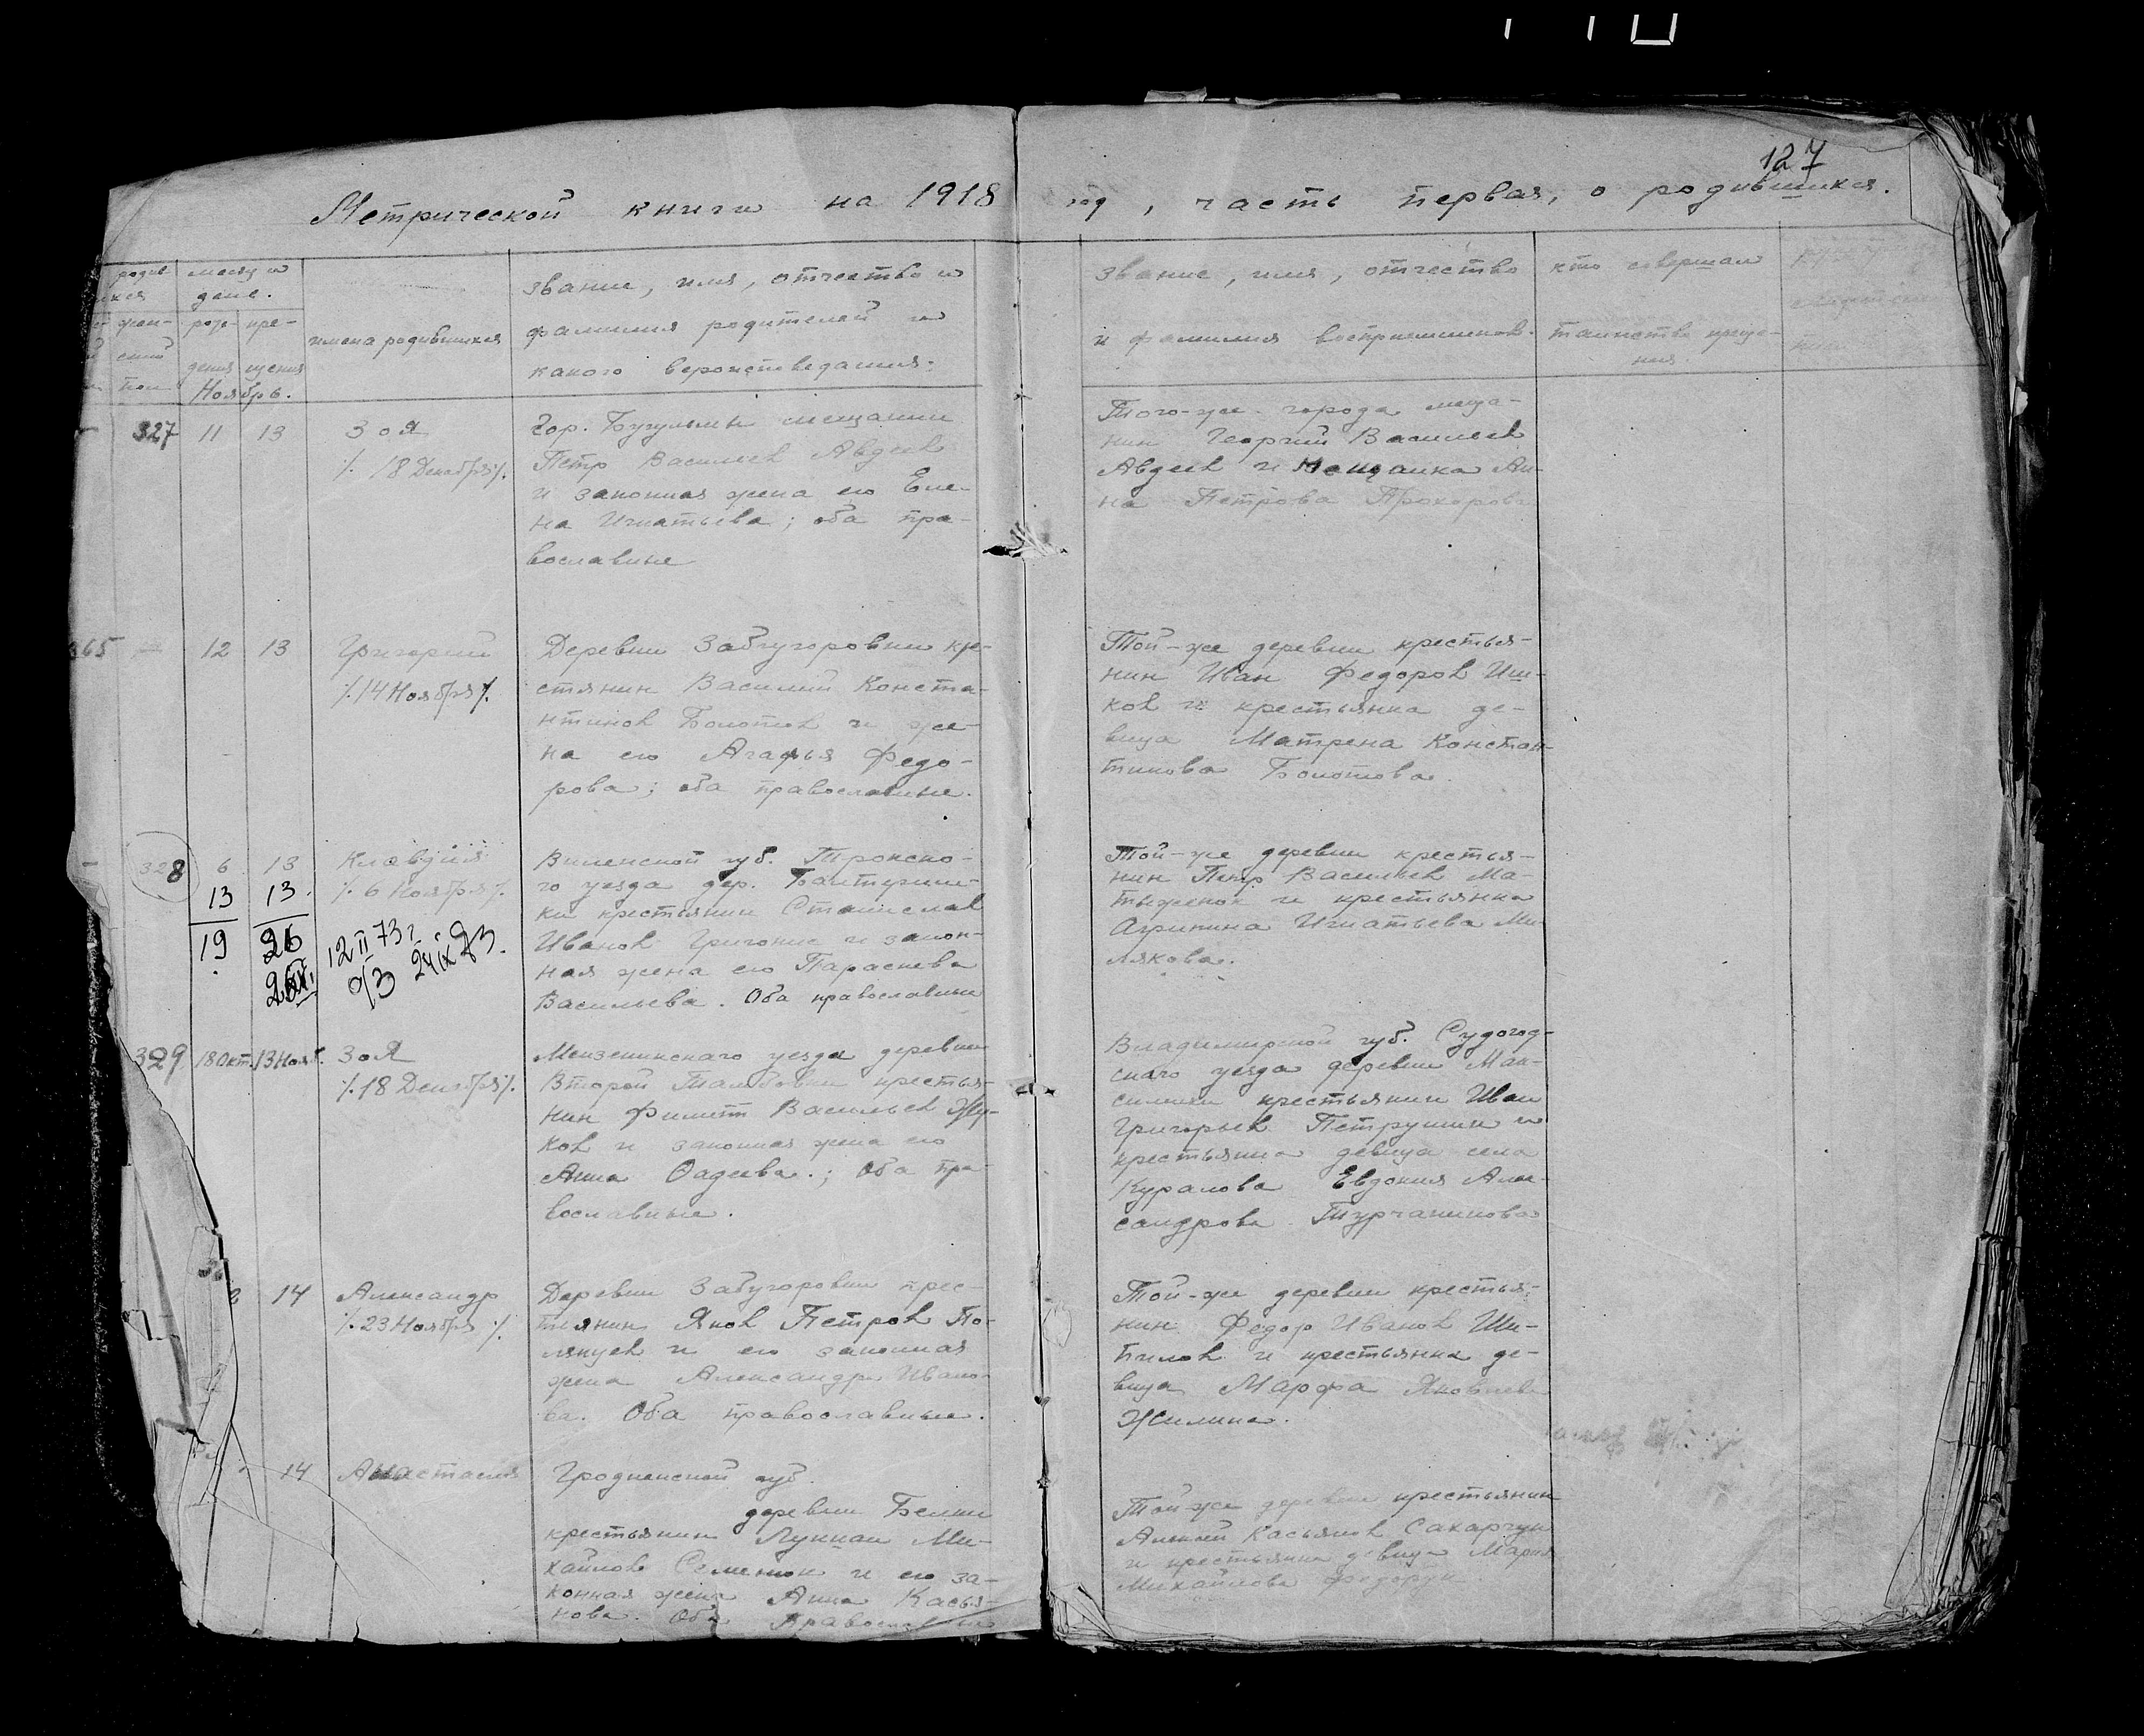 127
Метрической книги на 1918 год, часть первая, о родившихся.
месяц и
день.
жен-
ский
пол
рож-
дения
кре-
щения
Ноябрь.
имена родившихся
звание, имя, отчество и
фамилия родителей и
какого вероисповедания.
звание, имя, отчество
и фамилия восприемников.
кто совершал
таинство креще-
ния.
327 11 13 Зоя
/. 18 Декабря /.
Гор. Бугульмы мещанин
Петр Васильев Авдеев
и законная жена его Еле-
на Игнатьева; оба пра-
вославные
Того-же города меща-
нин Георгий Васильев
Авдеев и Мещанка Ан-
на Петрова Прохорова
365 12 13 Григорий
/. 14 Ноября /.
Деревни Забугоровки кре-
стянин Василий Конста-
нтинов Болотов и же-
на его Агафья Федо-
рова; оба православные.
Той-же деревни крестья-
нин Иван Федоров Иш-
ков и крестьянка де-
вица Матрена Констан-
тинова Болотова.
328 6 13 Клавдия
/. 6 Ноября /.
13 13.
19 26
12 II 73 г.
Виленской губ. Трокско-
го уезда дер.
ки крестьянин Станислав
Иванов и закон-
ная жена его Параскева
Васильева. Оба православные
Той-же деревни крестья-
нин Петр Васильев Ма-
тюженок и крестьянка
Агрипина Игнатьева Ми-
лякова.
329 18 Окт. 13 Нояб. Зоя
/. 18 Декабря /.
Мензелинскаго уезда деревни
Второй Тамбовки крестья-
нин Филипп Васильев Жу-
ков и законная жена его
Анна Фадеева.; Оба пра-
вославные.
Владимирской губ. Судогод-
скаго уезда деревни Мак-
симихи крестьянин Иван
Григорьев Петрушин и
крестьянка девица села
Куралова Евдокия Алек-
сандрова Турчанинова
14 Александр
/. 23 Ноября /.
Деревни Забугоровки крес-
тьянин Яков Петров По-
луянов и его законная
жена Александра Ивано-
ва. Оба православные.
Той-же деревни крестья-
нин Федор Иванов Ши-
пилов и крестьянка де-
вица Марфа Яковлева
Жилина.
14 Анастасия
Гродненской губ.
деревни
крестьянин Лукиан Ми-
хайлов Семенюк и его за-
конная жена Анна Касья-
нова. Оба Православные
Той-же деревни крестьянин
Алексей Касьянов Сахарчук
и крестьянка девица Мария
Михайлова Федорук